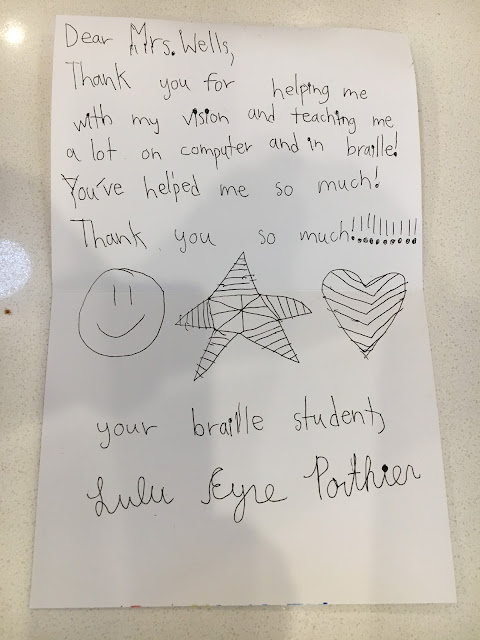 Dear Mrs. Wells,
Thank you for helping me
with my vision and teaching me
a lot on computer and in braille!
You've helped me so much!
Thank you so much!!!!!!!!!!!
your braille student,
Lulu Eyre